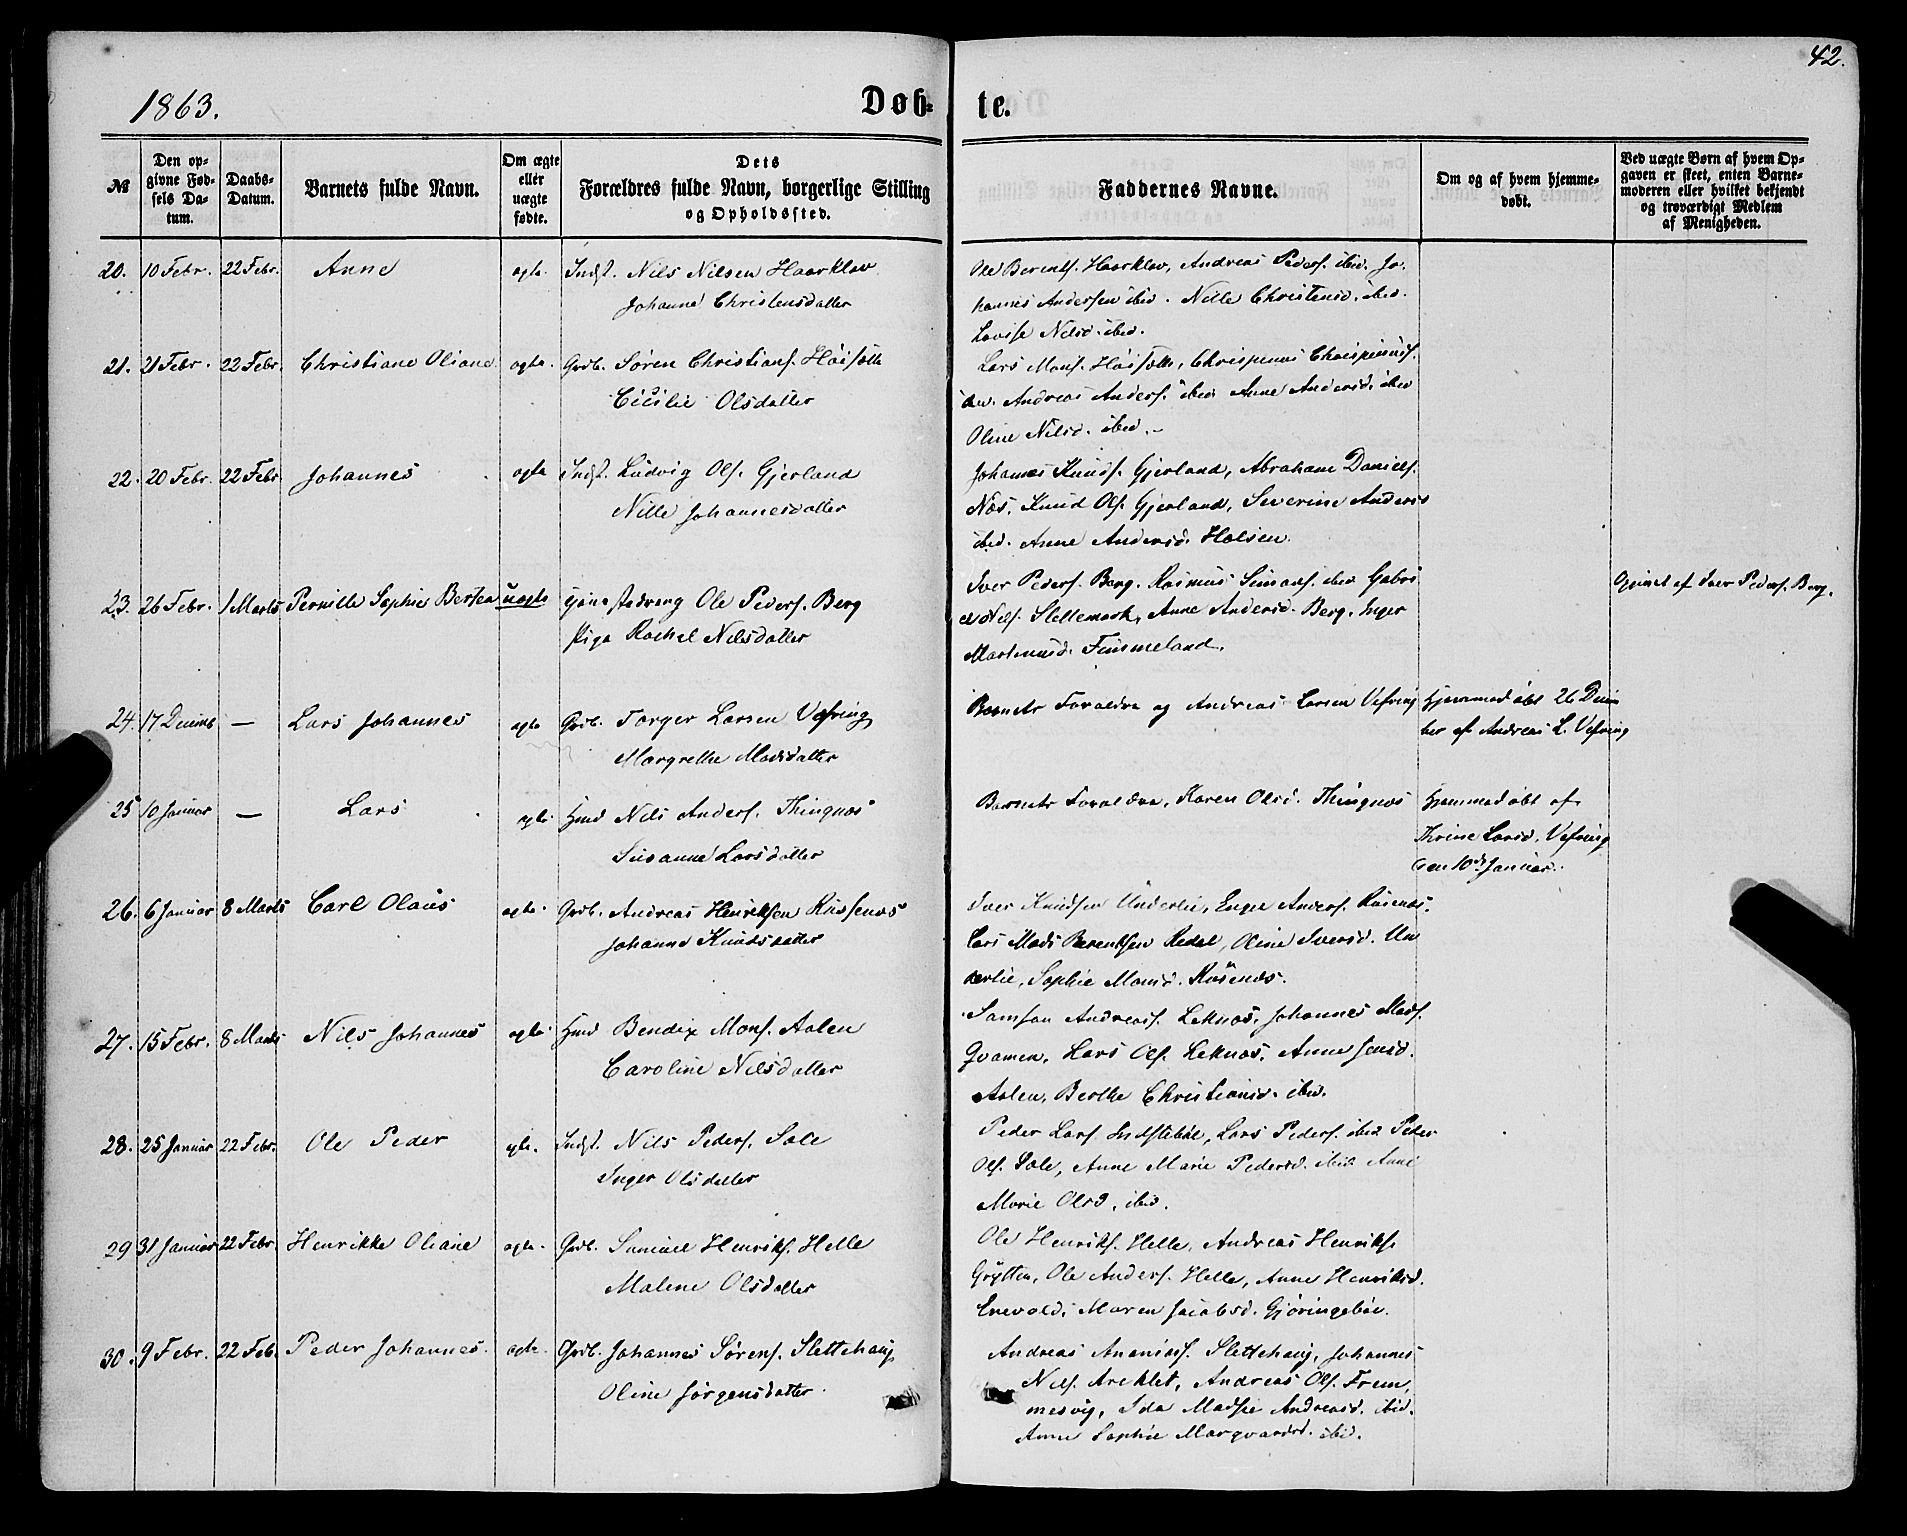 42.
1863.
Døb-
te.
№
Den op-
givne Fød-
sels Da-
tum.
Daabs-
Datum.
Barnets fulde Navn.
Om ægte
eller
uægte
fødte.
Dets
Forældres fulde Navn, borgerlige Stilling
og Opholdssted.
Faddernes Navne.
Om og af hvem hjemme-
døbt.
Ved uægte Børn af hvem Op-
gaven er skeet, enten Barne-
moderen eller hvilket bekjendt
og troværdigt Medlem
af Menigheden.
20. 10 Febr. 22 Febr. Anne ægte Indst. Nils Nilsen Haarklav
Johanne Christensdatter
Ole Berents. Haarklav, Andreas Peders. ibid. Jo-
hannes Andersen ibid. Nille Christensd. ibid.
Lovise Nilsd. ibid.
21. 21 Febr. 22 Febr. Christiane Oliane ægte. Grdb. Søren Christians. Høisæth
Cicilie Olsdatter
Lars Mons. Høisæth, Chrispinus Chrispinuss.
ibid. Andreas Anders. ibid. Anne Andersd. ibid
Oline Nilsd. ibid.
22. 20 Febr. 22 Febr Johannes ægte Indst. Ludvig Ols. Gjerland
Nille Johannesdatter
Johannes Knuds. Gjerland, Abraham Daniels.
Næs, Knud Ols. Gjerland, Severine Andersd
ibid. Anne Andersd. Holsen.
23. 26 Febr. 1 Marts Pernille Sophie Bersen uægte Tjenestedreng Ole Peders. Berg
Pige Rachel Nilsdatter
Iver Peders. Berg, Rasmus Simons. ibid Gabri
el Nils. Slettemark, Anne Andersd. Berg, Inger
Martinusd. Timmeland.
Opgivet af Iver Peders. Berg.
24. 17 Decemb — Lars Johannes ægte Grdb. Torger Larsen Vefring
Margrethe Madsdatter
Barnets Forældre og Andreas Larsen Vefring
Hjemmedøbt 26 Decem
ber af Andreas L. Vefring
25 10 Januar — Lars ægte Hmd Nils Anders. Thingnæs
Susanne Larsdatter
Barnets Forældre, Karen Olsd. Thingnæs
Hjemmedøbt af
Thrine Larsd. Vefring
den 10de Januar.
26. 6 Januar 8 Marts Carl Olaus ægte. Grdb. Andreas Henriksen Russenæs
Johanne Knudsdatter
Iver Knudsen Underlie, Enge Anders. Rusenæs,
Lars Mads Berentsen Redal, Oline Iversd. Un
derlie, Sophie Monsd. Rusenæs.
27. 15 Febr. 8 Marts Nils Johannes ægte Hmd Bendix Mons. Aalen
Caroline Nilsdatter
Samson Andreass. Leknæs, Johannes Mads.
Qvamen, Lars Ols. Leknæs, Anne Jensd.
Aalen, Berthe Christiansd. ibid.
28. 25 Januar 22 Febr. Ole Peder ægte. Indst. Nils Peders. Sole
Inger Olsdatter
Peder Lars. Indstebøe, Lars Peders. ibid Peder
Ols. Sole, Anne Marie Pedersd. ibid Anne
Marie Olsd. ibid.
29 31 Januar 22 Febr. Henrikke Oliane ægte. Grdb. Samuel Henriks. Helle
Malene Olsdatter
Ole Henriks. Helle, Andreas Henriks.
Grytten, Ole Anders. Helle, Anne Henriksd.
Enevold, Maren Jacobsd. Gjøringebøe.
30. 9 Febr. 22 Feb. Peder Johannes. ægte. Grdb. Johannes Sørens. Slettehaug
Oline Jørgensdatter.
Andreas Ananiass. Slettehaug, Johannes
Nils. Areklet, Andreas Ols. Frem-
mesvig, Ida Madsie Andreasd. ibid.
Anne Sophie Marqvardsd. ibid.